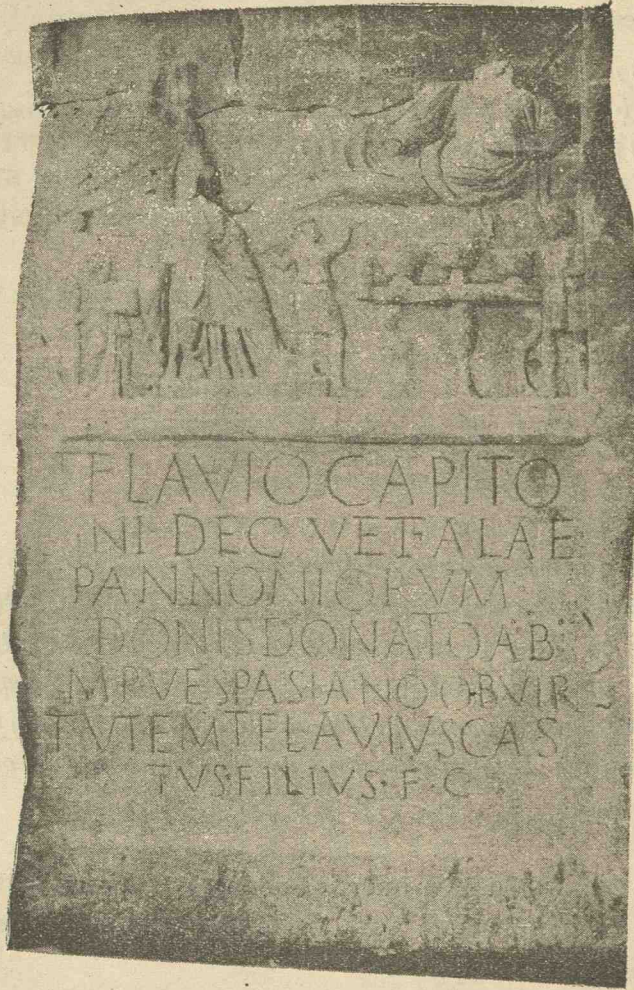 FLAVIO CAPITO
NI DEC VET·ALAE
PANNONIORVM
DONIS DONATO AB
MP VESPASIANO OB VIR
TVTEM T FLAVIVS CAS
TVS·FILIVS·F·C